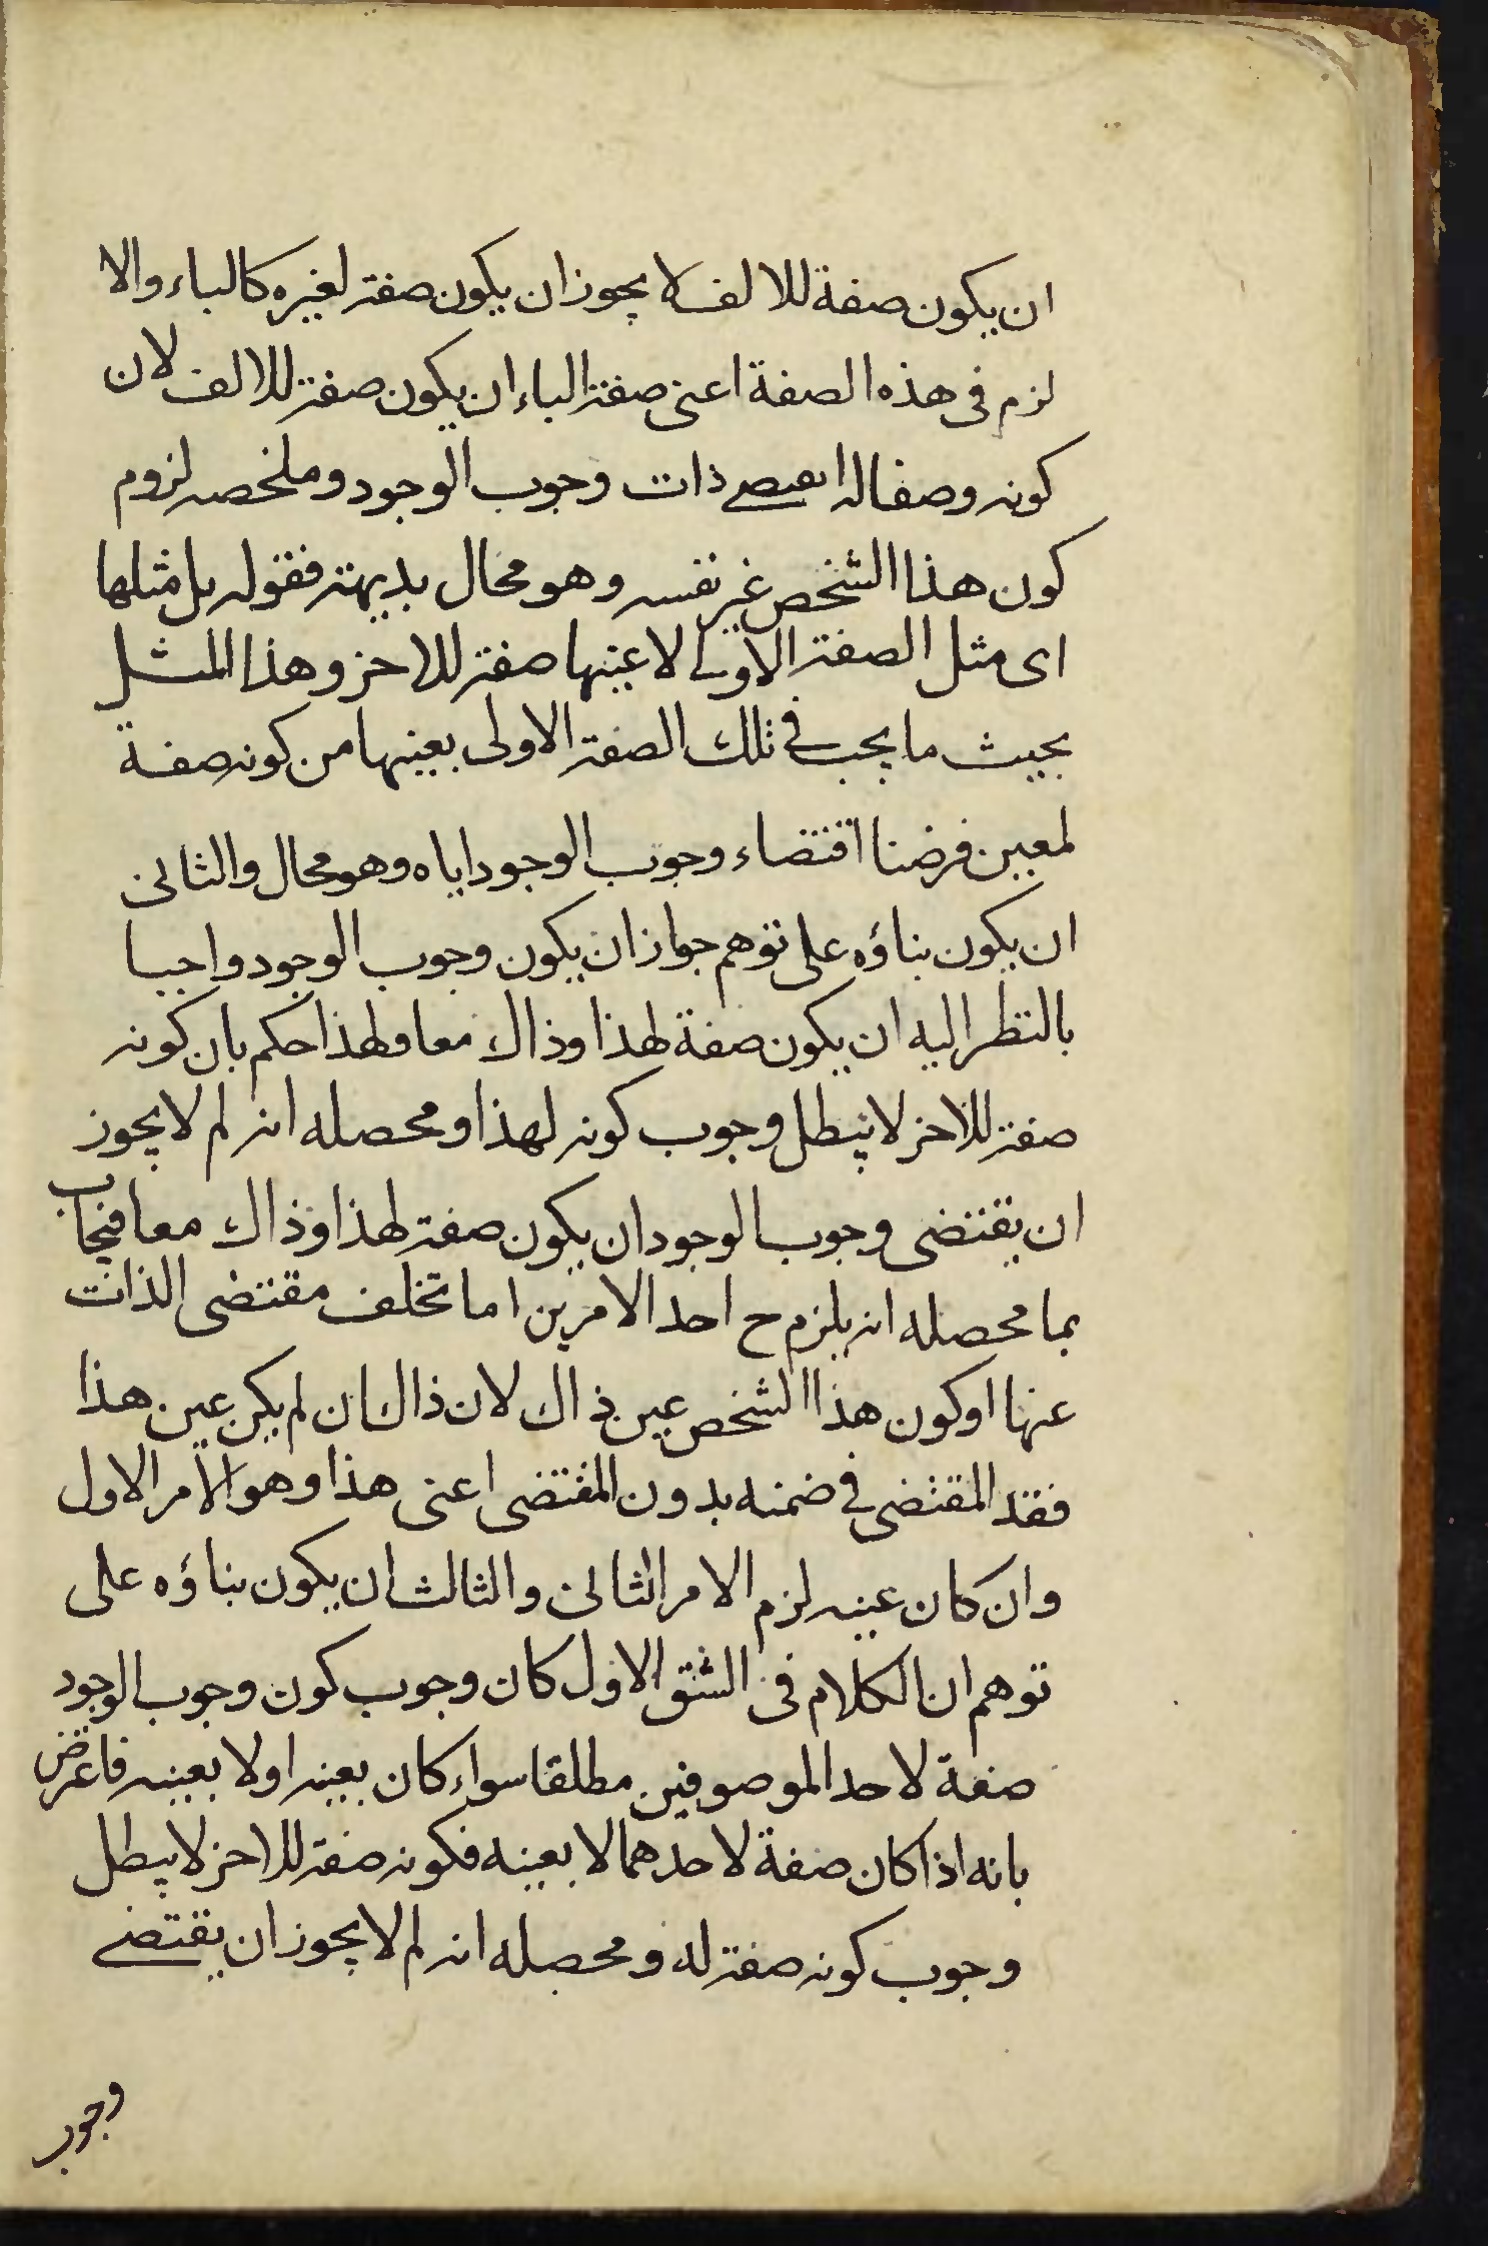 ان يكون صفة للالف لا يجوز ان يكون صفة لغيره كالباء والا
لزم فى هذه الصفة اعنى صفة الباء ان يكون صفة للالف لان
كونه وصفا له ذات وجوب الوجود وملخصه لزوم
كون هذا الشخص غير نفسه وهو محال بديهة فقوله بل مثلها
اى مثل الصفة الاولى لا عينها صفة للاخر وهذا المثل
بحيث ما يجب فى تلك الصفة الاولى بعينها من كونه صفة
لمعين فرضنا اقتضاء وجوب الوجود اياه وهو محال والثانى
ان يكون بناؤه على توهم جواز ان يكون وجوب الوجود واجبا
بالنظر اليه ان يكون صفة لهذا وذاك معا ولهذا حكم بان كونه
صفة للاخر لا يبطل وجوب كونه لهذا ومحصله انه لم لا يجوز
ان يقتضى وجوب الوجود ان يكون صفة لهذا وذاك معا فيجاب
بما محصله انه يلزم ح احد الامرين اما تخلف مقتضى الذات
عنها او كون هذا الشخص عين ذاك لان ذاك ان لم يكن عين هذا
فقد المقتضى فى ضمنه بدون المقتضى اعنى هذا وهو الامر الاول
وان كان عينه لزم الامر الثانى والثالث ان يكون بناؤه على
توهم ان الكلام فى الشق الاول كان وجوب كون وجوب الوجود
صفة لاحد الموصوفين مطلقا سواء كان بعينه او لا بعينه فاعترض
بانه اذا كان صفة لاحدهما لا بعينه فكونه صفة للاخر لا يبطل
وجوب كونه صفة له ومحصله انه لم لا يجوز ان يقتضى
وجوب